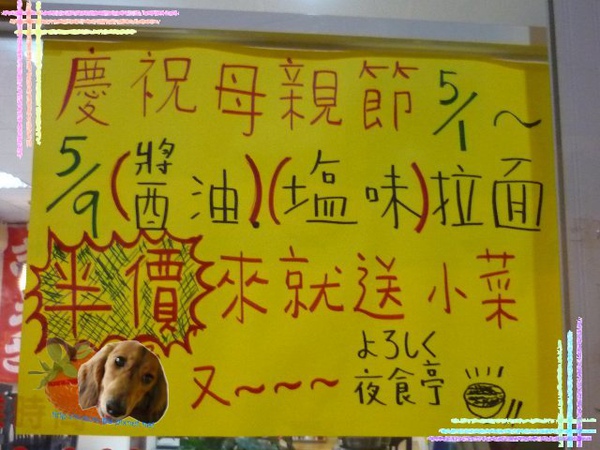 慶祝母親節 5/1～
5/9(醬油)(塩味)拉面
半價來就送小菜
又～～～～
よろしく
夜食亭